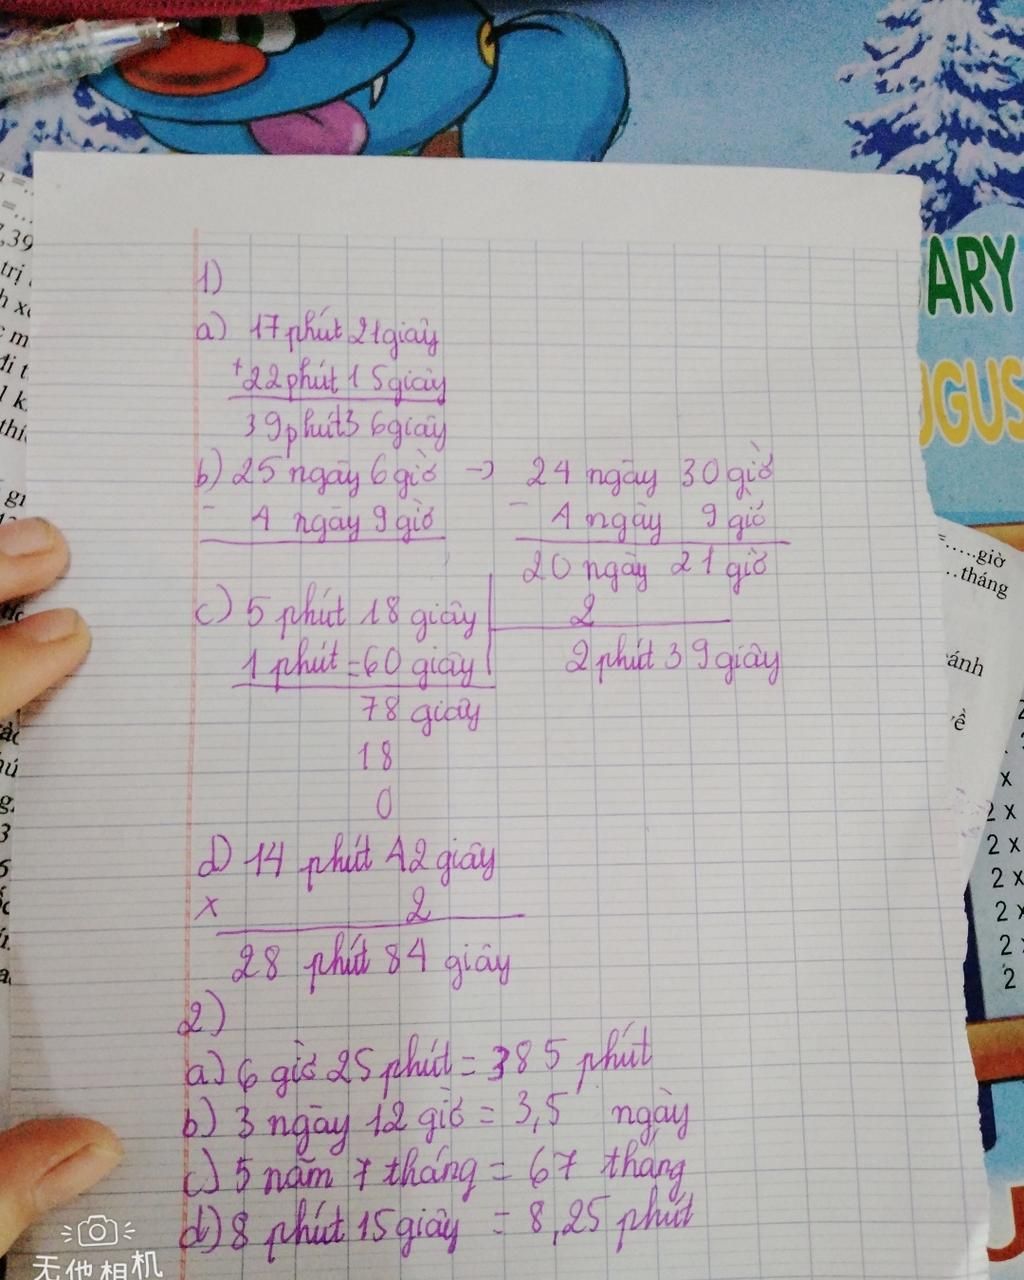 1)
a) 17 phút 21 giây
+ 22 phút 15 giây
39 phút 36 giây
b) 25 ngày 6 giờ → 24 ngày 30 giờ
- 4 ngày 9 giờ - 4 ngày 9 giờ
20 ngày 21 giờ
c) 5 phút 18 giây 2
1 phút = 60 giây 2 phút 39 giây
78 giây
18
0
d) 14 phút 42 giây
x 2
28 phút 84 giây
2)
a) 6 giờ 25 phút = 385 phút
b) 3 ngày 12 giờ = 3,5 ngày
c) 5 năm 7 tháng = 67 tháng
d) 8 phút 15 giây = 8,25 phút
ARY
UGUS
=.....giờ
...tháng
ánh
2 x
2 x
2 x
2
无他相机